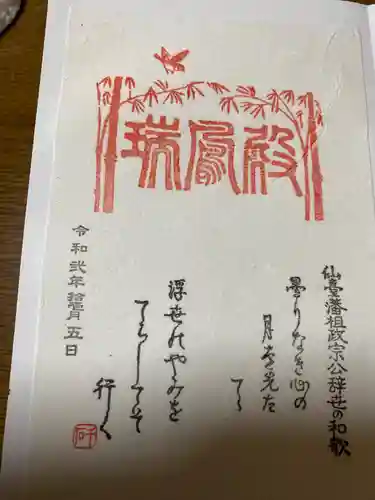 瑞鳳殿
仙臺藩祖政宗公辞世の和歌
曇りなき心の
月を先た
てゝ
浮世のやみを
てらしてそ
行く
令和弐年 月五日